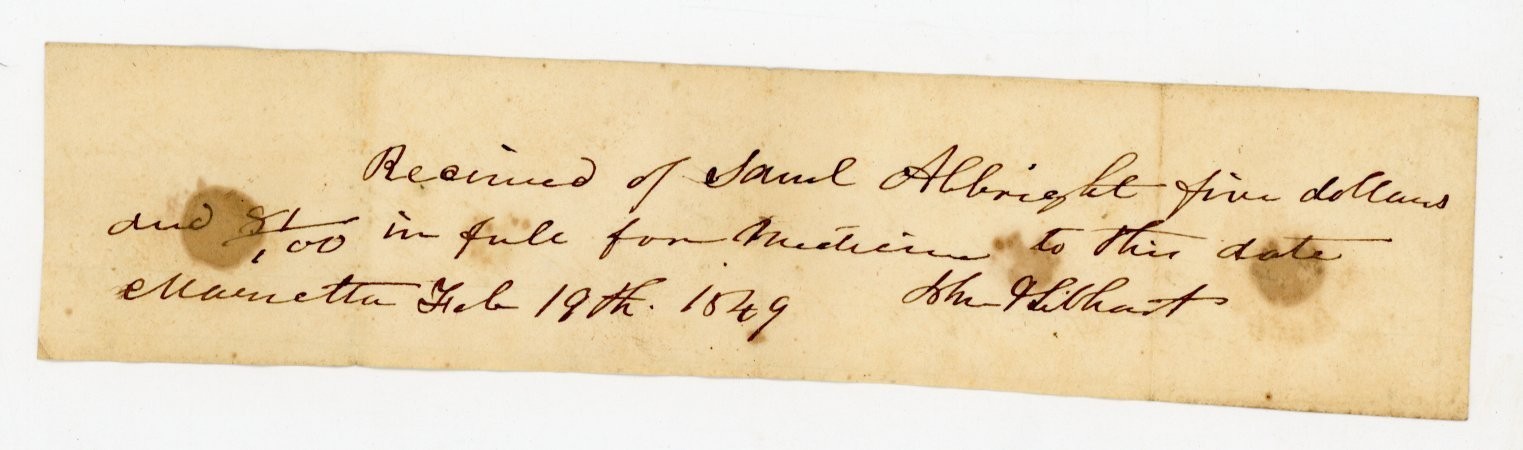 Received of Saml Albright five dollars
and 81/100 in full for Medicine to this date
Marietta Feb 19th. 1849 John J Libhart